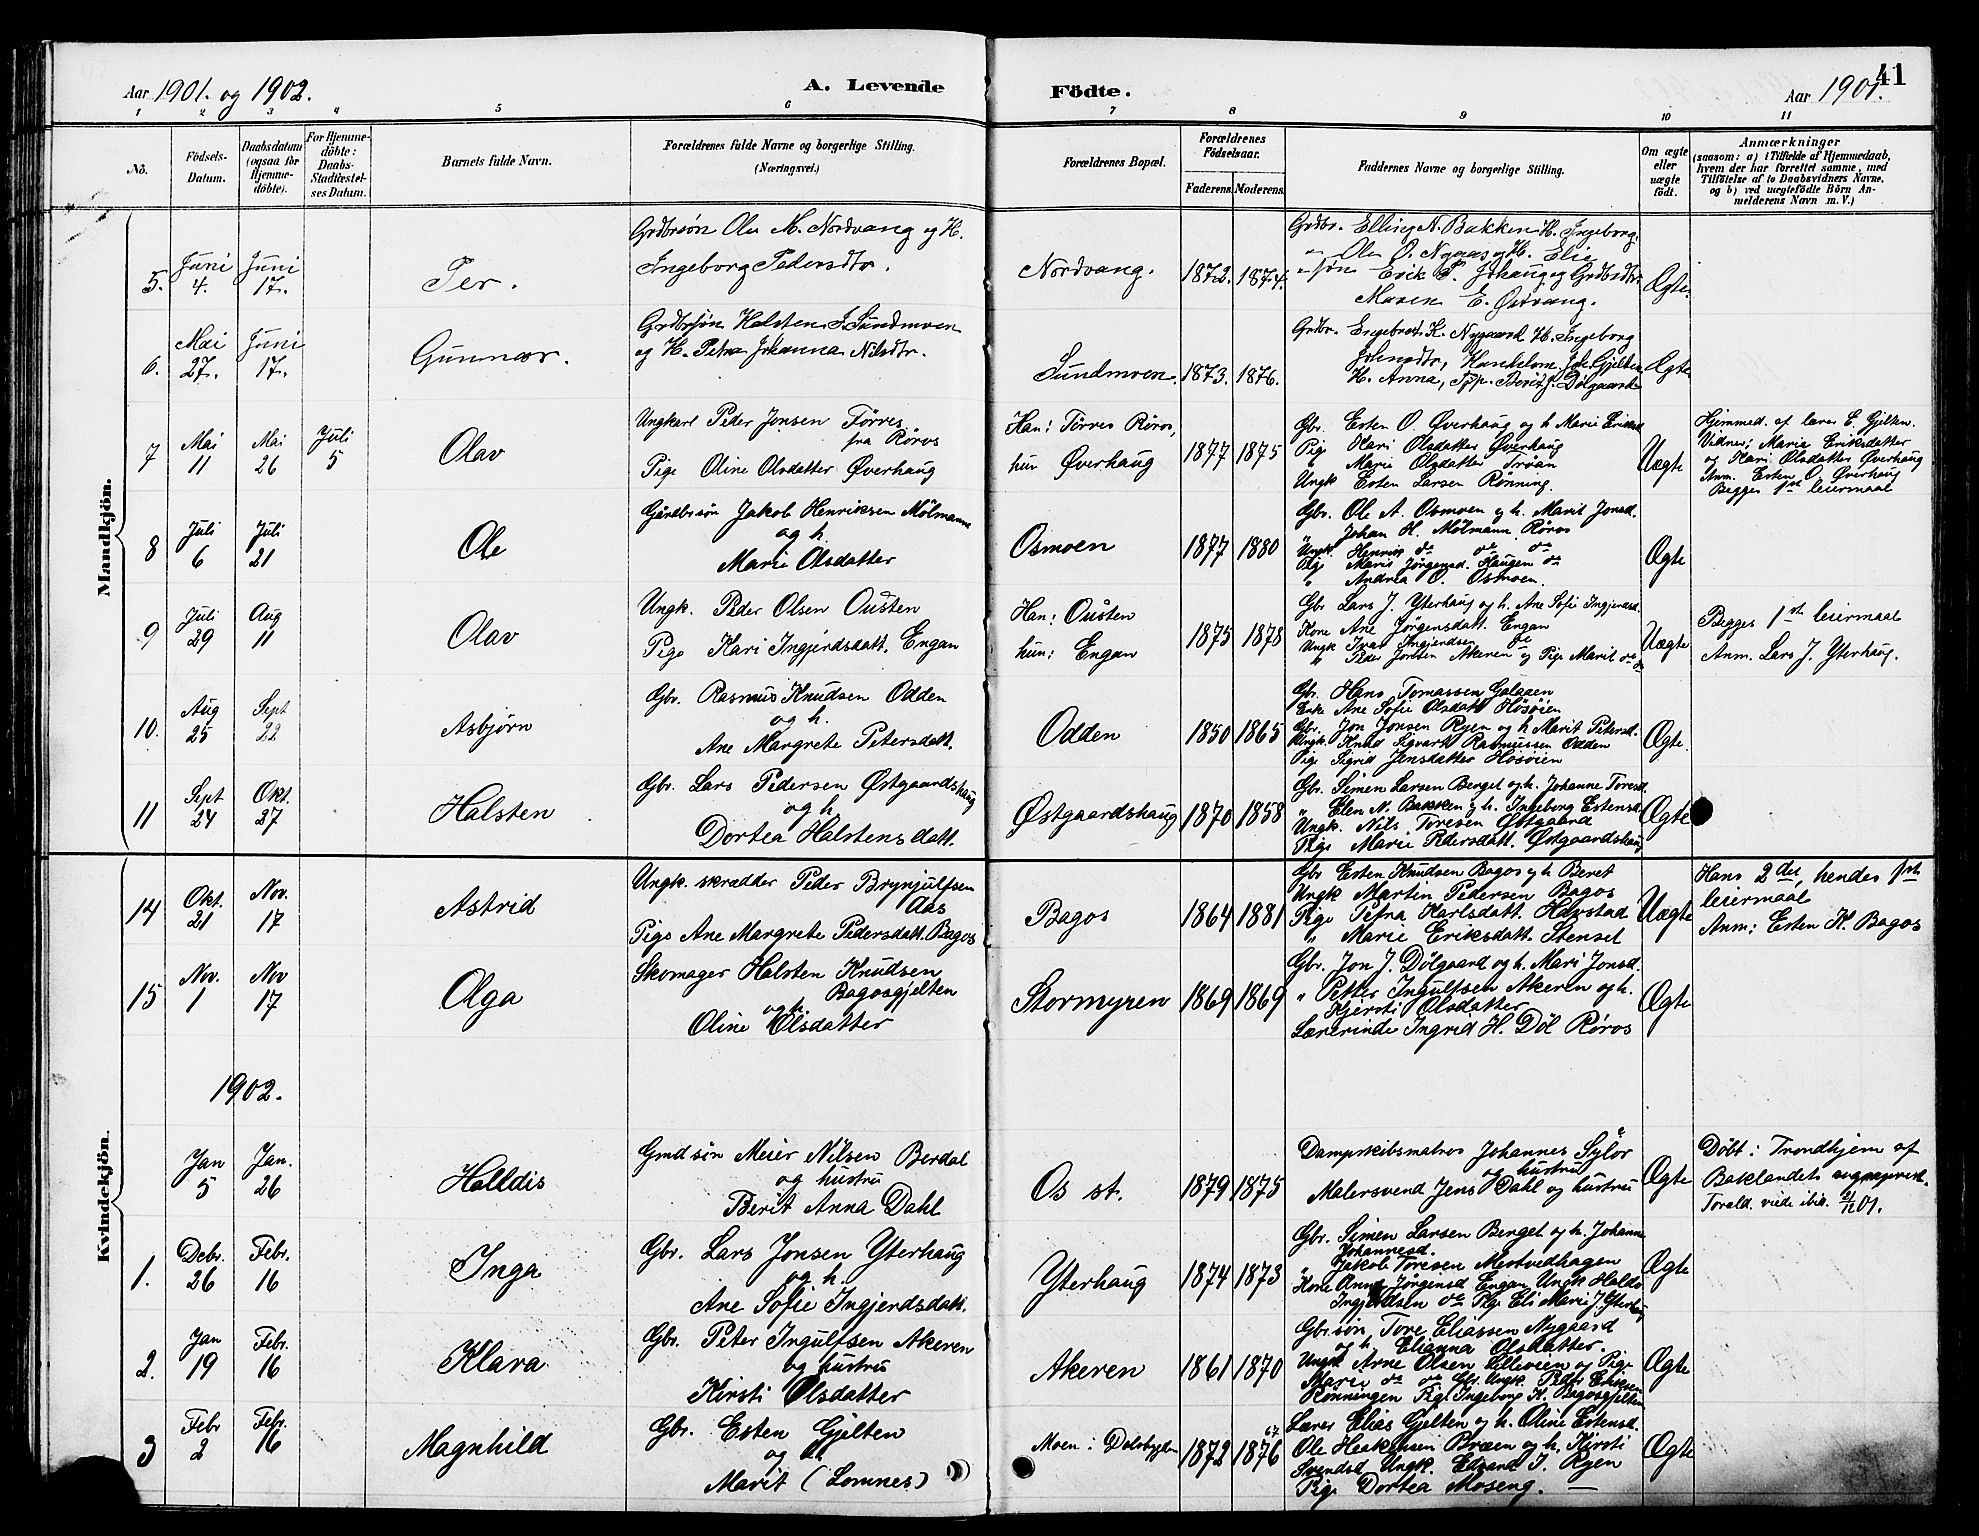 Aar 1901. og 1902.
A. Levende
Födte.
Aar 1901.
41
1 2 3 4 5 6 7 8 9 10 11
No.
Födsels-Datum.
Daabsdatum (ogsaa for Hjemmedöbte).
For Hjemmedöbte: Daabs-Stadfæstelses Datum.
Barnets fulde Navn.
Forældrenes fulde Navne og borgerlige Stilling.
(Næringsvei.)
Forældrenes Bopæl.
Forældrenes Födselsaar.
Faderens. Moderens.
Faddernes Navne og borgerlige Stilling.
Om ægte eller uægte födt.
Anmærkninger
(saasom: a) i Tilfælde af Hjemmedaab, hvem der har forrettet samme, med Tilföielse af to Daabsvidners Navne, og b) ved uægtefödte Börn Anmelderens Navn m. V.)
Mandkjön.
5. Juni 4. Juni 17.
Per.
Grdbrsøn Ole M. Nordvang og H.
Ingeborg Pedersdtr.
Nordvang. 1872. 1874.
Grdbr. Elling N. Bakken H. Ingeborg.
" Ole O. Nygaas og H. Elie
" søn Erik P. Johaug og Grdbrdtr
Maren E. Østvang.
Ægte.
6. Mai 27. Juni 17.
Gunnar.
Grdbrsøn Halsten J. Sundmoen
og H. Petra Johanna Nilsdtr.
Sundmoen. 1873. 1876.
Grdbr. Engebret K. Nygaard H. Ingeborg
Johnsdtr, Handelsm. Joh. Gjelten
H. Anna, Pige Berit J. Dølgaard
Ægte
7 Mai 11 Mai 26 Juli 5
Olav
Ungkarl Peder Jonsen Tørres
fra Røros
Pige Oline Olsdatter Øverhaug
Han: Tørres Røros,
hun Øverhaug
1877 1875
Gbr. Esten O. Øverhaug og h Marie Eriksd
Pige Kari Olsdatter Øverhaug
" Marie Olsdatter Trøan
Ungk Esten Larsen Rønning.
Uægte
Hjemmed. af lærer E. Gjelten.
Vidner: Marie Eriksdatter
og Kari Olsdatter Øverhaug
Anm. Esten O. Øverhaug
Begges 1ste leiermaal
8 Juli 6 Juli 21
Ole
Gårdbrsøn Jakob Henriksen Mølmann
og h.
Marie Olsdatter
Osmoen 1877 1880
Gbr. Ole A. Osmoen og h. Marit Jonsd.
" Johan H. Mølmann Røros
Ungk. Henrik do do do
Pige Maris Jørgensd. Haugen do
" Andrea O. Osmoen.
Ægte
9 Juli 29 Aug 11
Olav
Ungk. Peder Olsen Ousten
Pige Kari Ingjerdsdatt. Engan
Han: Ousten
hun: Engan
1875 1878
Gbr Lars J. Yterhaug og h. Ane Sofie Ingjerdsd.
Kone Ane Jørgensdatt. Engan
Ungk Ivar Ingjerdsen do
" Peder Jonsen Akeren og Pige Marit do do
Uægte
Begges 1ste leiermaal
Anm. Lars J. Yterhaug.
10. Aug 25 Sept 22
Asbjørn
Gbr. Rasmus Knudsen Odden
og h.
Ane Margrete Petersdatt.
Odden 1850 1865
Gbr. Hans Tomassen Galaaen
Enke Ane Sofie Olsdatt Hosøien
Gbr. Jon Jonsen Ryen og h Marit Petersd.
Ungk. Knud Sigvart Rasmussen Odden
Pige Sigrid Jensdatter Hosøien
Ægte.
11 Sept 24 Okt. 27
Halsten
Gbr. Lars Pedersen Østgaardshaug
og h.
Dortea Halstensdatt.
Østgaardshaug 1870 1858
Gbr. Simen Larsen Berget og h. Johanne Toresd.
" Elen N. Bakken og h. Ingeborg Estensd
Ungk. Nils Toresen Østgaard
Pige Marie Pedersdatt. Østgaardshaug
Ægte
Kvindekjön.
14 Okt. 21 Nov. 17
Astrid
Ungk. skrædder Peder Brynjulfsen
Aas
Pige Ane Margrete Pedersdatt. Bagos
Bagos 1864 1881
Gbr Esten Knudsen Bagos og h Beret
Ungk Martin Pedersen Bagos
Pige Petra Karlsdatt. Havstad
" Marie Eriksdatt. Stensel
Uægte
Hans 2det, hendes 1ste
leiermaal
Anm: Esten K. Bagos
15 Nov. 1 Nov 17
Olga
Skomager Halsten Knudsen
Bagosgjelten
og h.
Oline Olsdatter
Stormyren 1869 1869
Gbr. Jon J. Dølgaard og h. Mari Jonsd.
" Petter Ingulfsen Akeren og h.
Kjersti Olsdatter
Lærerinde Ingrid H. Döl Røros
Ægte
1902.
Jan 5 Jan. 26
Halldis
Gmdsøn Meier Nilsen Berdal
og hustru
Berit Anna Dahl
Os st. 1879 1875
Dampskibsmatros Johannes Sylor
og hustru
Malersvend Jens Dahl og hustru
Ægte
Døbt i Trondhjem af
Baklandets sogneprest.
Foreld. viede ibid. 01.
1. Debr. 26 Febr. 16
Inga
Gbr. Lars Jonsen Yterhaug
og h.
Ane Sofie Ingjerdsdatt.
Yterhaug 1874 1873
Gbr. Simen Larsen Berget og h. Johanne
Johannesd.
" Jakob Toresen Mestvedhagen
Kone Anne Jørgensd Engan Ungk Haldo
Ingjerdsen do Pige Eli Marie J. Yterhaug
Ægte
2. Jan 19 Febr. 16
Klara
Gbr. Peter Ingulfsen Akeren
og hustru
Kirsti Olsdatter
Akeren 1861 1870
Gbrsøn Tore Eliassen Nygaard
og h. Elianna Olsdatter.
Ungk Arne Olsen Lilleøien og Pige
Marie do do Gbr. Ungk. Peder Eriksen
Rønningen Pige Ingeborg K. Bagosgjelten
Ægte
3 Febr 2 Febr. 16
Magnhild
Gbr. Esten Gjelten
og h.
Marit (Lomnes)
Moen i Dalsbygden 1872 1876 67
Lærer Elias Gjelten og h. Oline Estensd.
Ole Haakensen Bræen og h. Kirsti
Svendsd Ungk. Edvard J. Ryen
Pige Dortea Moseng.
Ægte